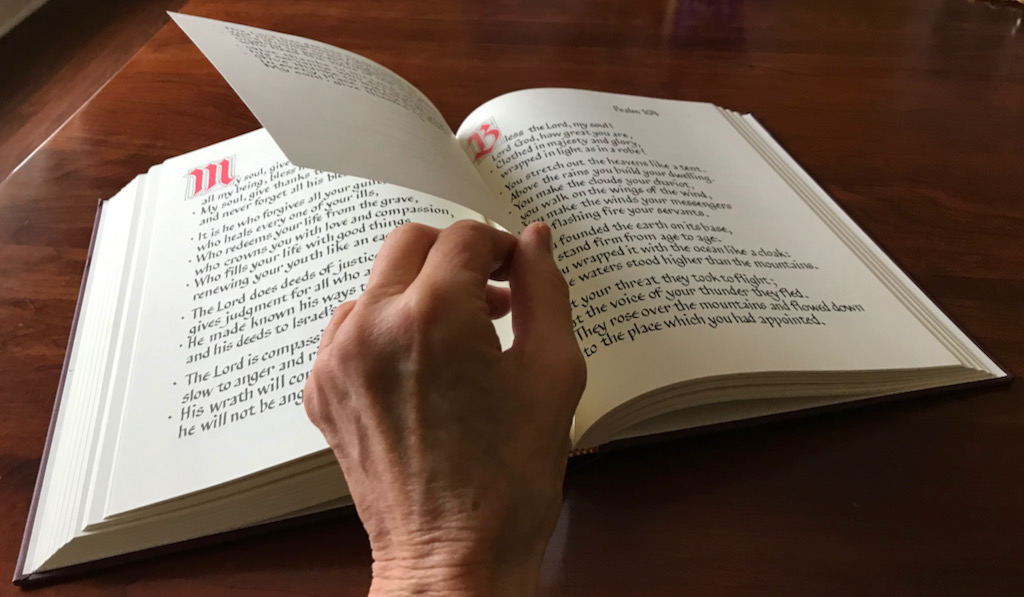 My soul, give
all my being, bless
· My soul, give thanks
and never forget all his
· It is he who forgives all your guilt,
who heals every one of your ills,
· Who redeems your life from the grave,
who crowns you with love and compassion,
· Who fills your life with good things,
renewing your youth like an
· The Lord does deeds of justice
gives judgment for all who
· He made known his ways
and his deeds to Israel's
· The Lord is
slow to anger and
· His wrath will
he will not be
Psalm 104
Bless the Lord, my soul!
Lord God, how great you are,
Clothed in majesty and glory,
wrapped in light as in a robe!
· You stretch out the heavens like a tent.
Above the rains you build your dwelling.
· You make the clouds your chariot,
you walk on the wings of the wind,
· You make the winds your messengers
flashing fire your servants.
founded the earth on its base,
stand firm from age to age.
wrapped it with the ocean like a cloak:
waters stood higher than the mountains.
your threat they took to flight;
the voice of your thunder they fled.
They rose over the mountains and flowed down
to the place which you had appointed.